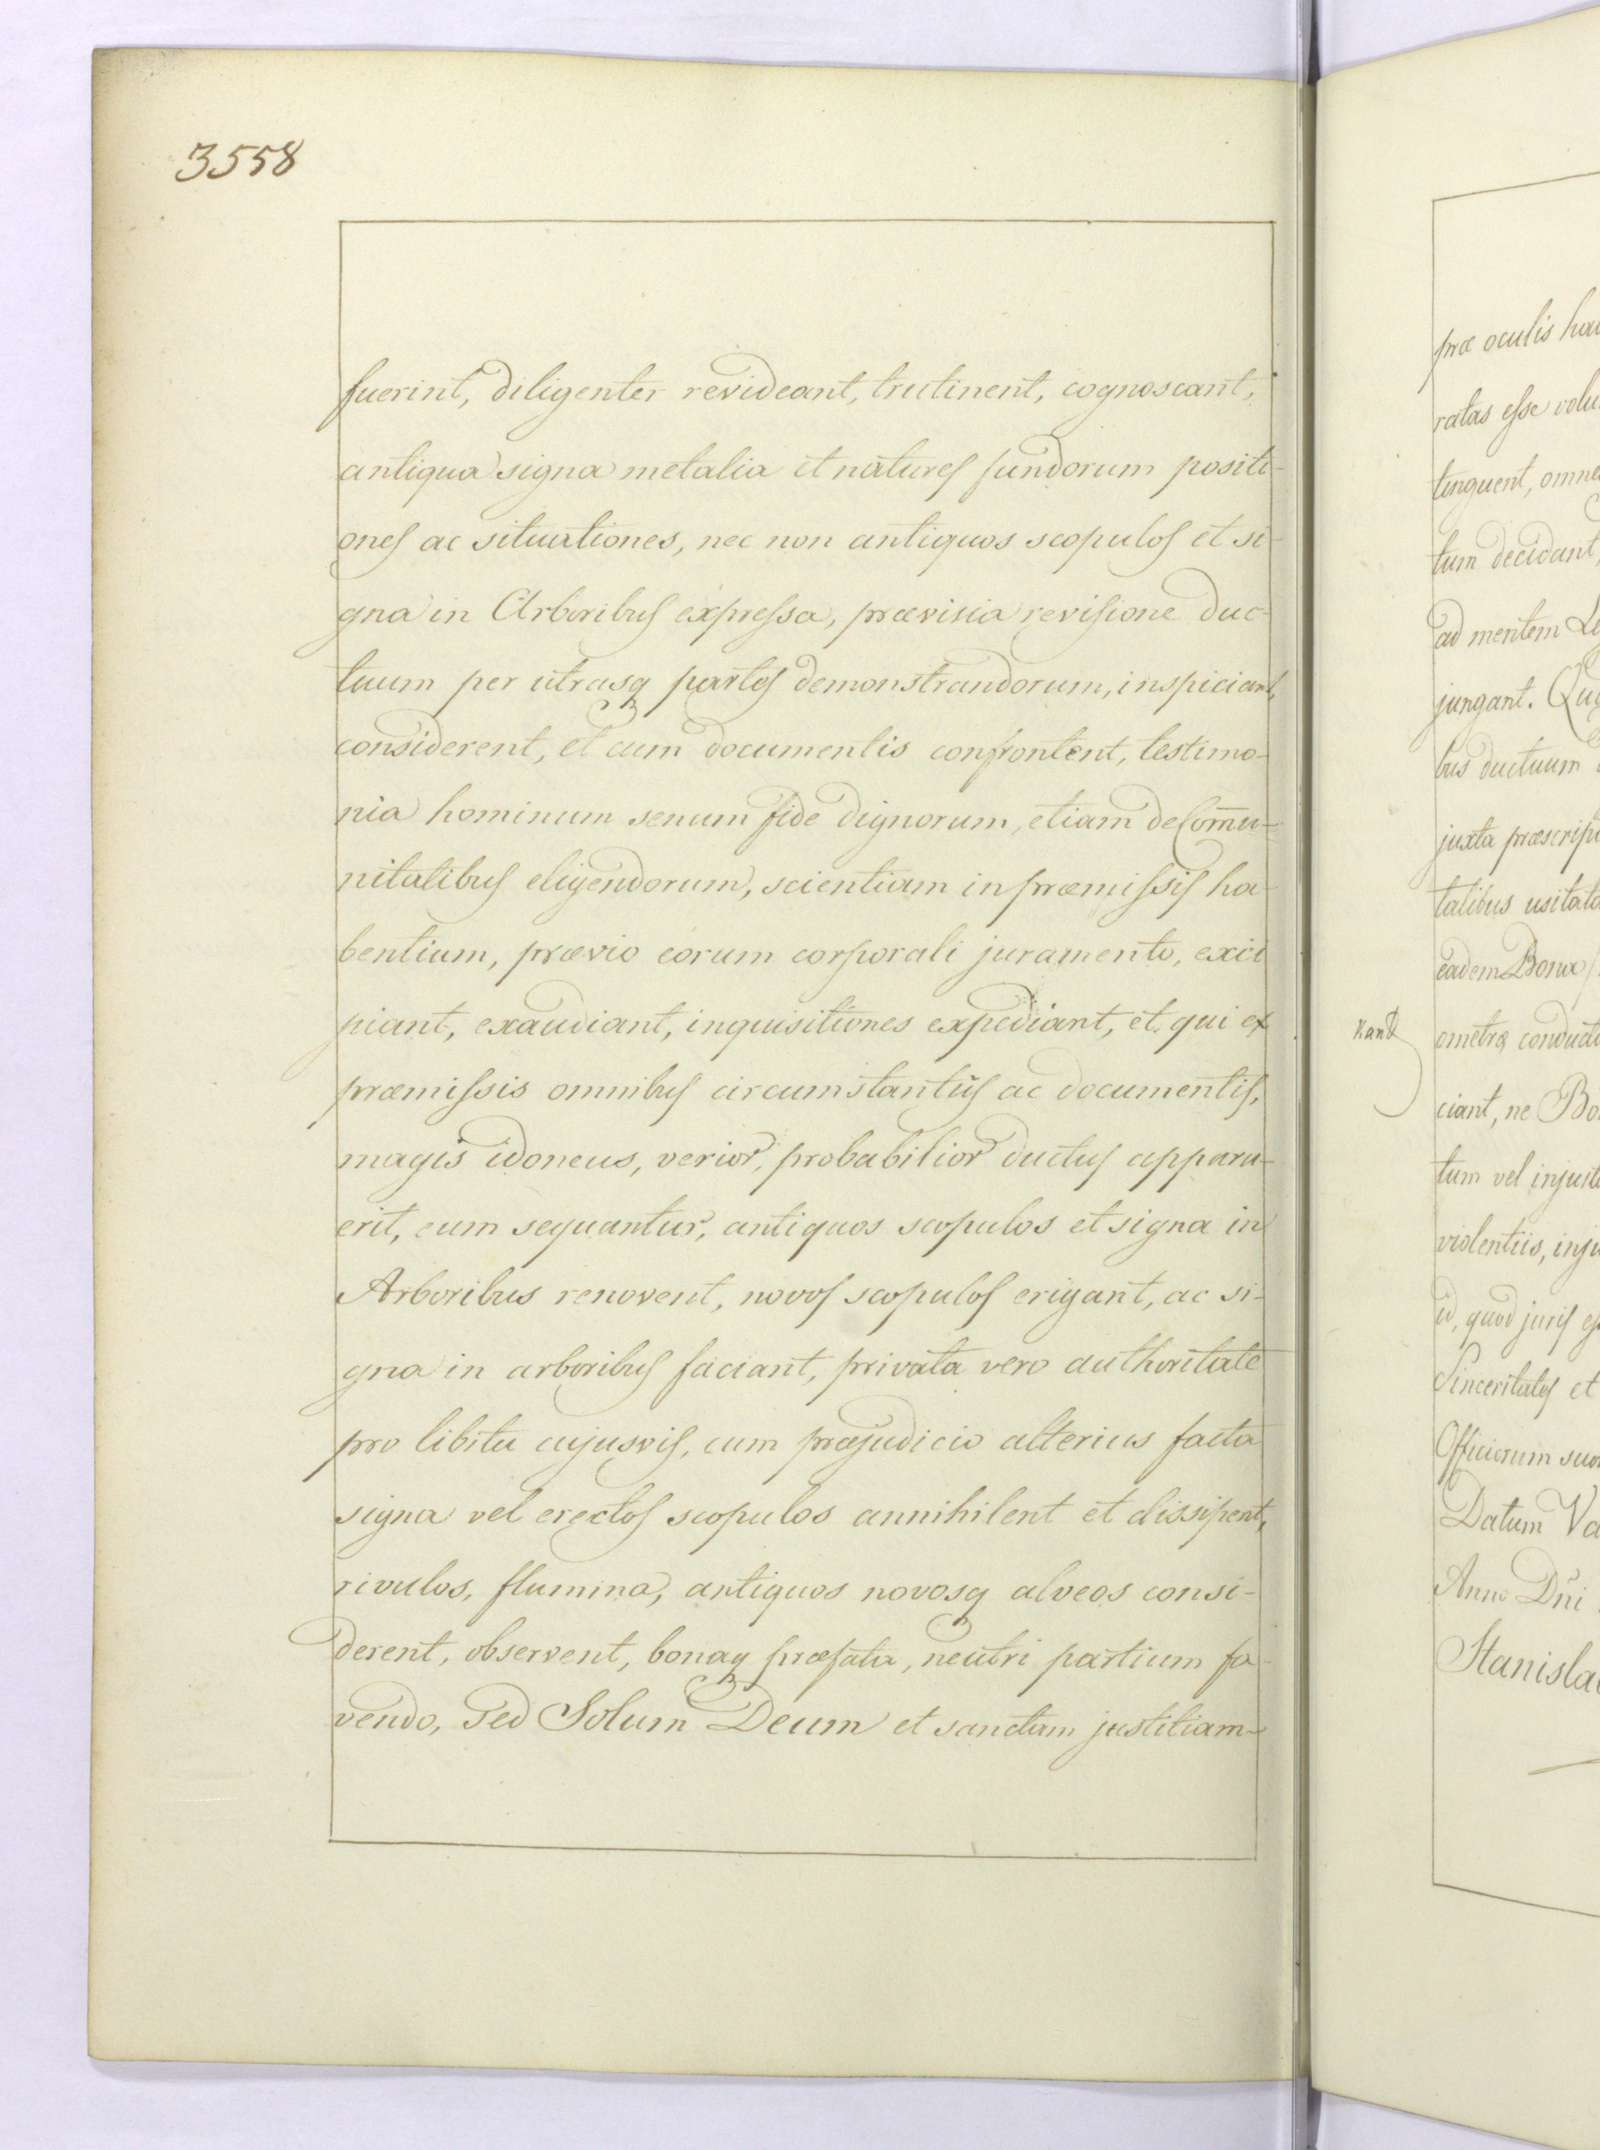 3558
fuerint, diligenter revideant, trutinent, cognoscant,
antiqua signa metalia et natures fundorum positi-
ones ac situationes, nec non antiquos scopulos et si-
gna in Arboribus expressa, prævisia revisione duc-
tuum per utrasq partes demonstrandorum, inspiciant,
considerent, et cum documentis confrontent, testimo-
nia hominum senum fide dignorum, etiam de Com̄u-
nitatibus eligendorum, scientiam in præmissis ha-
bentium, prævio eorum corporali juramento, exci
piant, exaudiant, inquisitiones expediant, et qui ex
præmissis omnibus circumstantiis ac documentis,
magis idoneus, verior, probabilior ductus apparu-
erit, eum sequantur, antiquos scopulos et signa in
Arboribus renovent, novos scopulos erigant, ac si-
gna in arboribus faciant, privata vero authoritate
pro libitu cujusvis, cum præjudicio alterius facta
signa vel erectos scopulos annihilent et dissipent,
rivulos, flumina, antiquos novosq alveos consi-
derent, observent, bonaq præfata, neutri partium fa-
vendo, sed Solum Deum et sanctam justitiam
præ oculis
ratas esse
tinguent,
tum decidant,
ad mentem
jungant.
bus ductuum
juxta
talibus
eadem Bona
ometra
ciant, ne
tum vel
violentiis,
id, quod juris
Sinceritates et
Officiorum
Datum
Anno Dn̄i